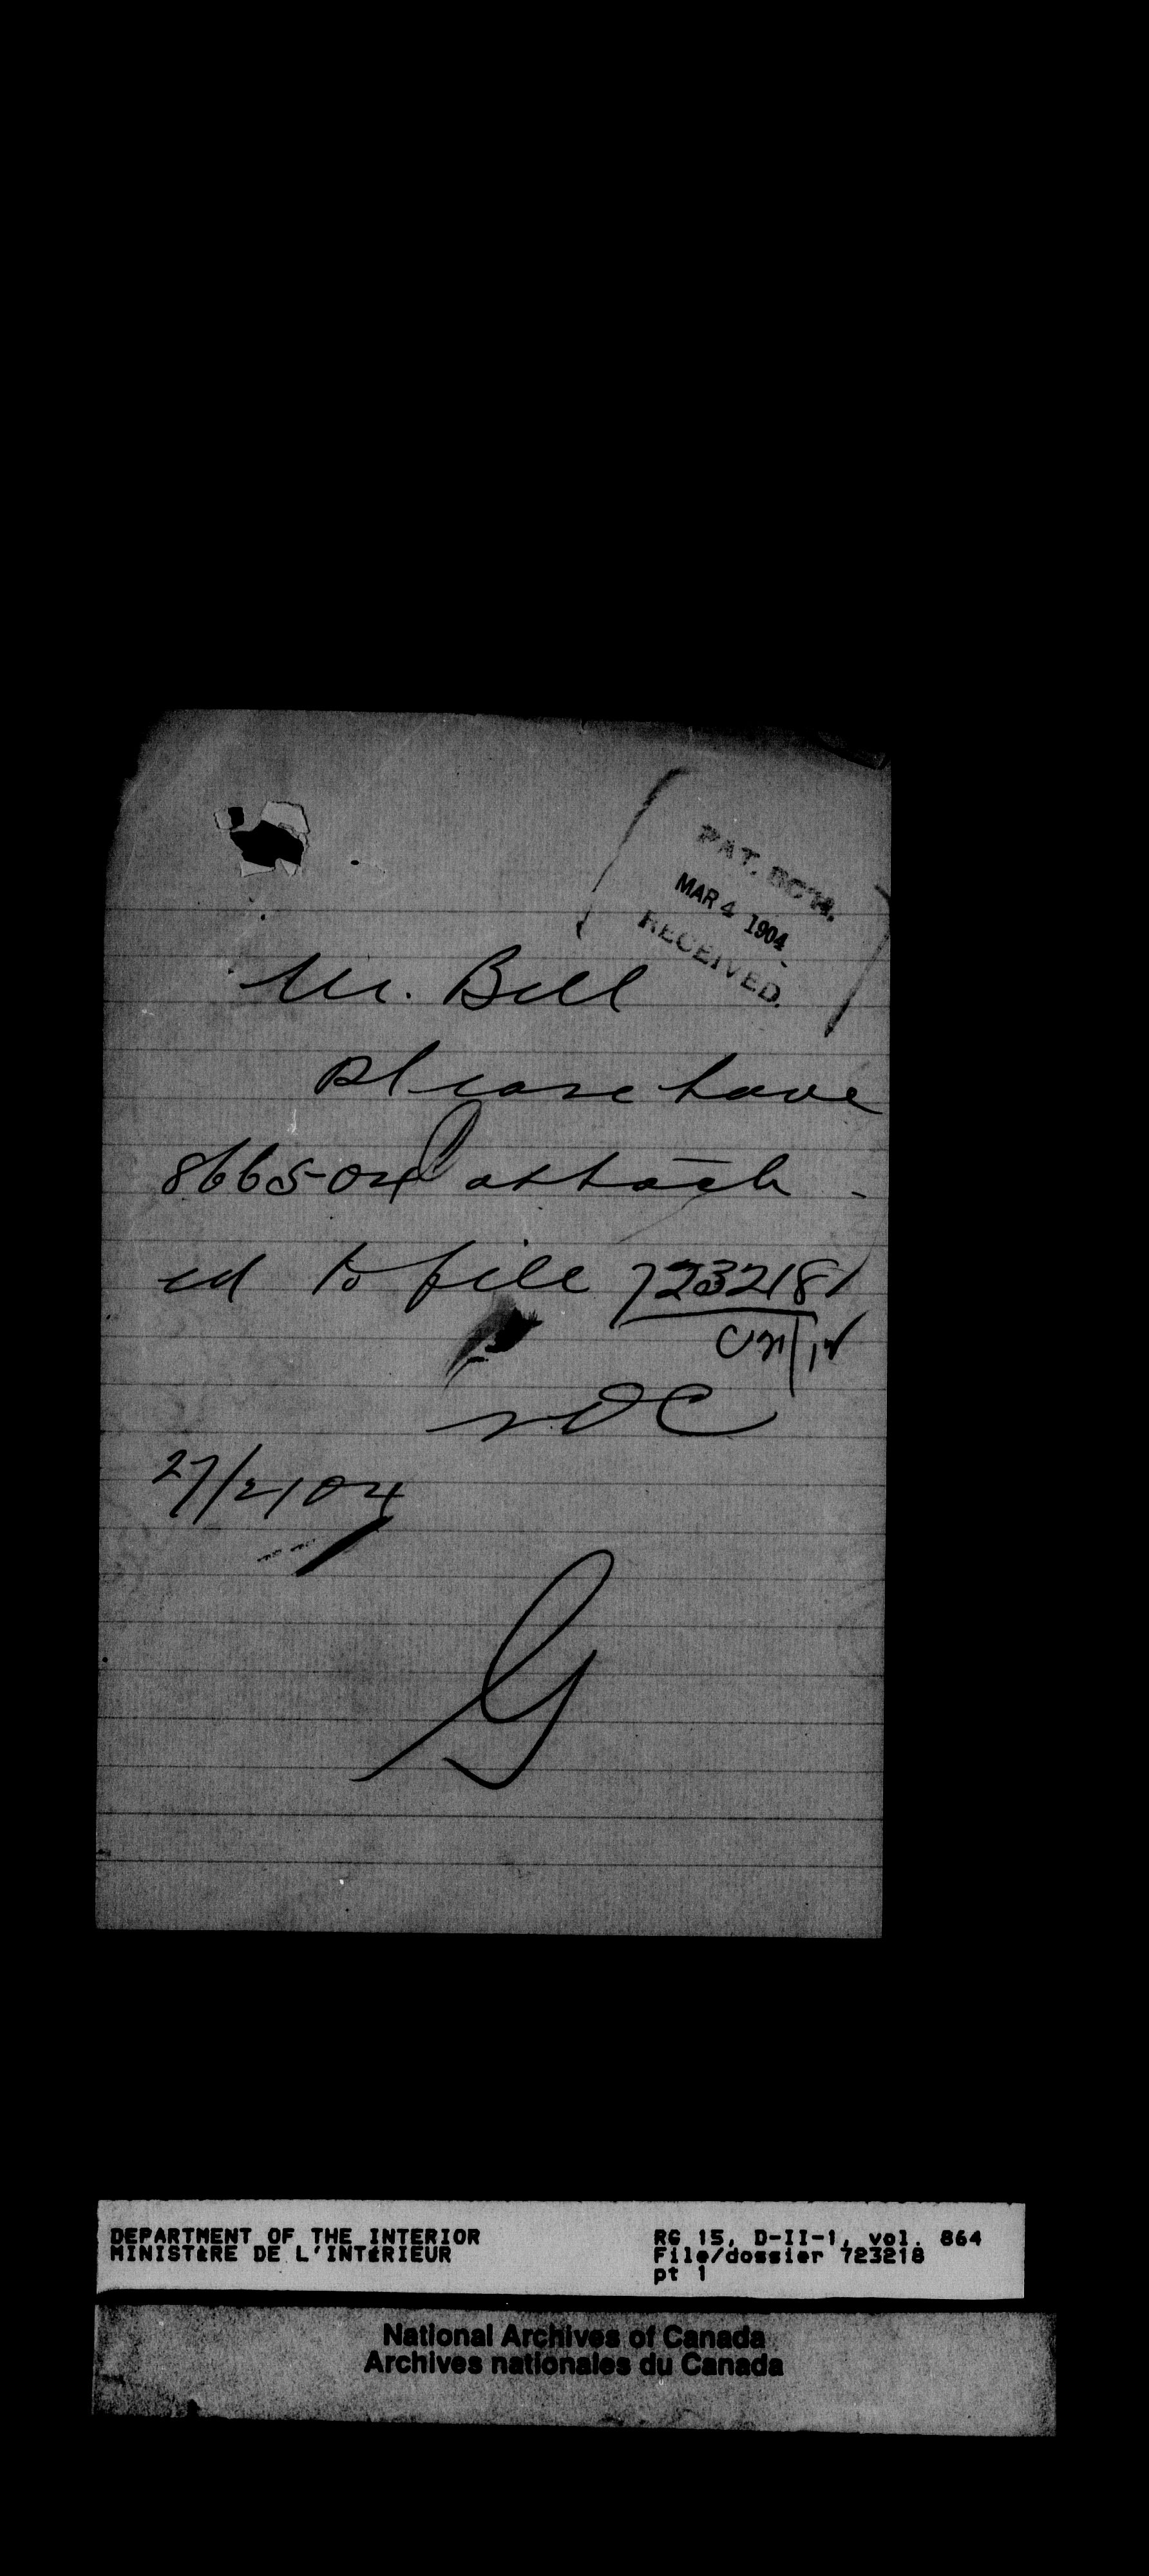 PAT. BCH.
MAR 4 1904
RECEIVED.
Mr. Bell
Please have
8665-04 attach-
ed to file 723218/
NOC
27/2/04
G
DEPARTMENT OF THE INTERIOR
MINISTÈRE DE L'INTÉRIEUR
RG 15, D-II-1, vol. 864
File/dossier 723218
pt 1
National Archives of Canada
Archives nationales du Canada